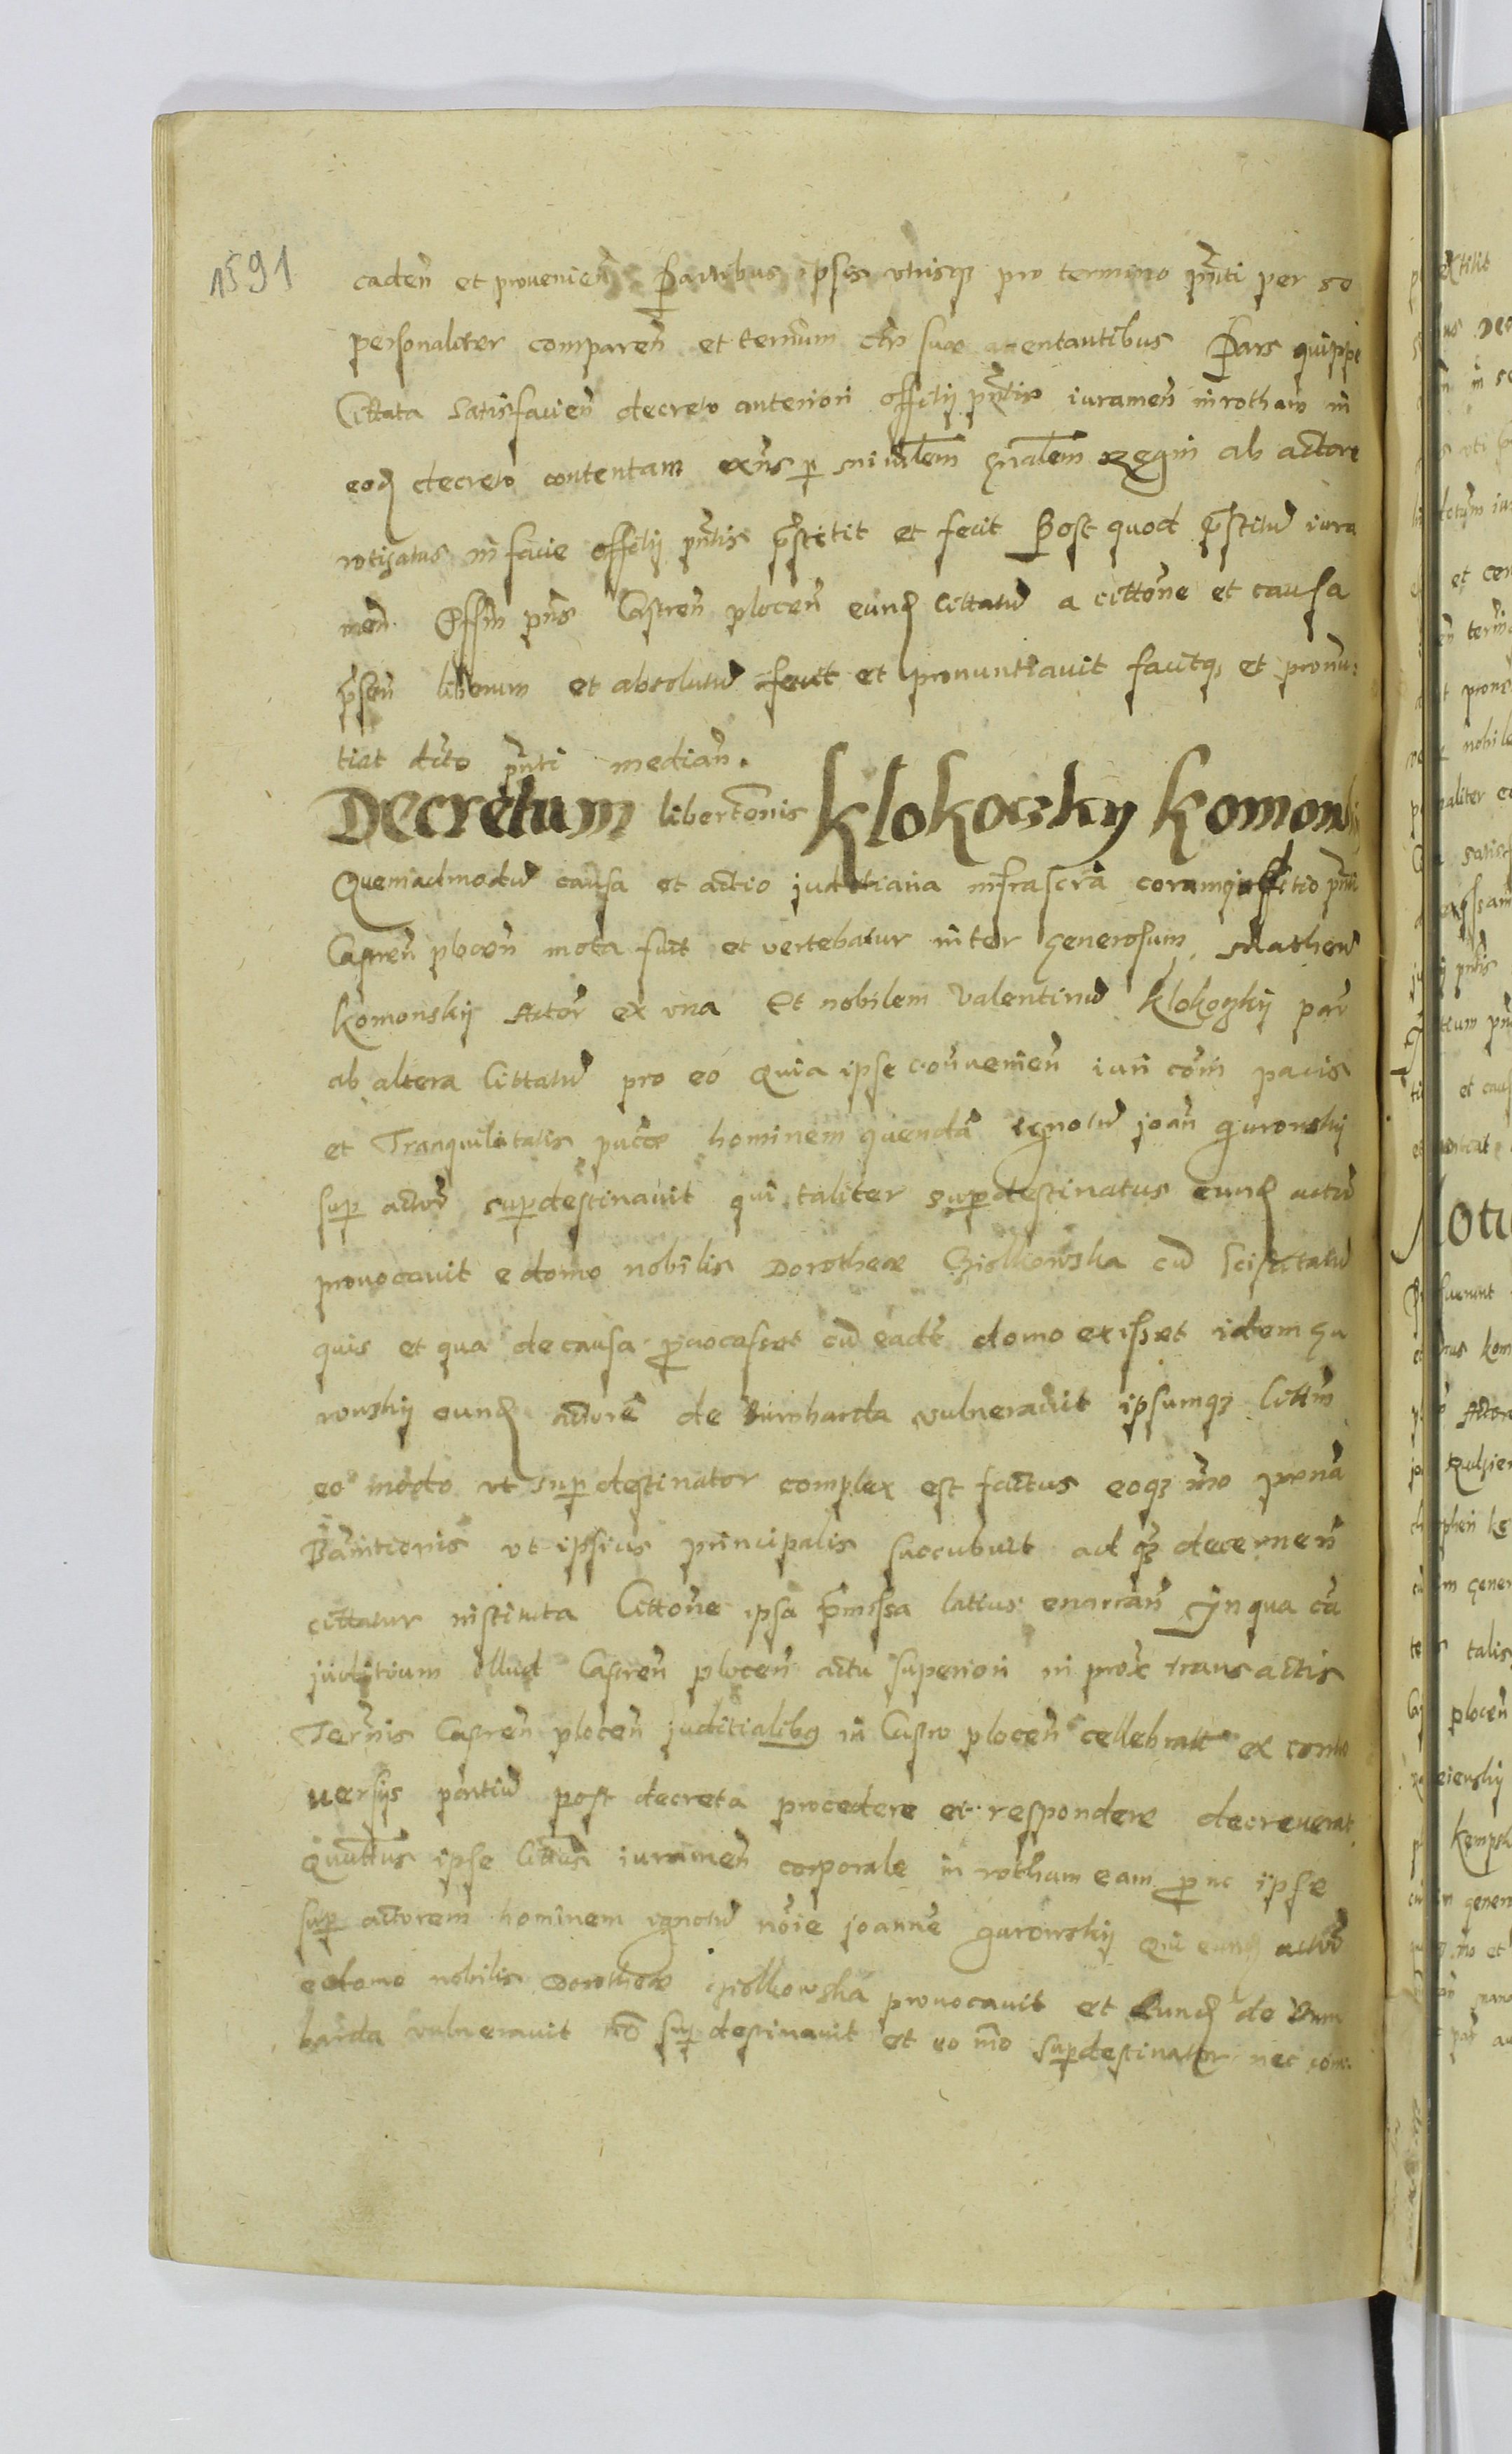 1591
caden̄ et provenien̄ Partibus ipsis utrisq₃ pro termino pn̄ti per se
personaliter comparen̄ et termum attentantibus Pars quippe
Cittata satisfacien̄ decreto anteriori officij pn̄tis iuramen̄ in rotham in
eod₃ decreto contentam exn̄s p ministerialem gn̄alem Regni ab actore
rotisatus in facie officij pn̄tis p̄stitit et fecit Post quod p̄stitū iura
men̄. Offm pn̄s Castren̄ plocen̄ eund₃ Cittatū a cittōne et causa
p̄sen̄ liberum et absolutū fecit et pronuntiavit facitq₃ et pronun:
tiat dcto pn̄ti median̄.
Decretum libertōnis Klokoczky Komonski
Quemadmodū causa et actio juditiaria infrascra coram officio pn̄ti
Castren̄ plocen̄ mota fuit et vertebatur inter generosum Matheū
Komonskij Actor̄ ex una Et nobilem Valentinū Klokoczkij par̄
ab altera Cittatū pro eo Quia ipse contravenien̄ iuri cōm̄ pacis
et Tranquilitatis pub̄cæ hominem quendā ignotū joan̄ gurowskij
sup actor̄ superdestinavit qui taliter superdestinatus eund₃ actor̄
provocavit e domo nobilis Dorotheæ Cziolkowska cū Sciscitatū
quis et qua de causa p̄vocasset cū eadē domo exisset idem gu
rowskij eund₃ actorē de Bumbarda vulneravit ipsumq₃ Cittm̄
eo modo ut superdestinator complex est factus eoq₃ mo pœnā
Bānitionis ut ipsius principalis succubuit ad q₃ decernen̄
cittatur instituta Cittōne ipsa p̄missa latius enarran̄ In qua cā
juditium illud Castren̄ plocen̄ actu superiori in prox̄ transactis
Termīs Castren̄ plocen̄ juditialibq in Castro plocen̄ cellebratt ex contro
versijs partiū post decreta procedere et respondere decreverat
Quatus ipse Cittus iuramen̄ corporale in rotham eam p nc ipse
sup actorem hominem ignotū nōie joannē gurowskij Qui eund₃ actor̄
e domo nobilis Dorotheæ Cziolkowska provocavit et Eund₃ de Bum
barda vulneravit nō sup destinavit et eo mo superdestinator nec com